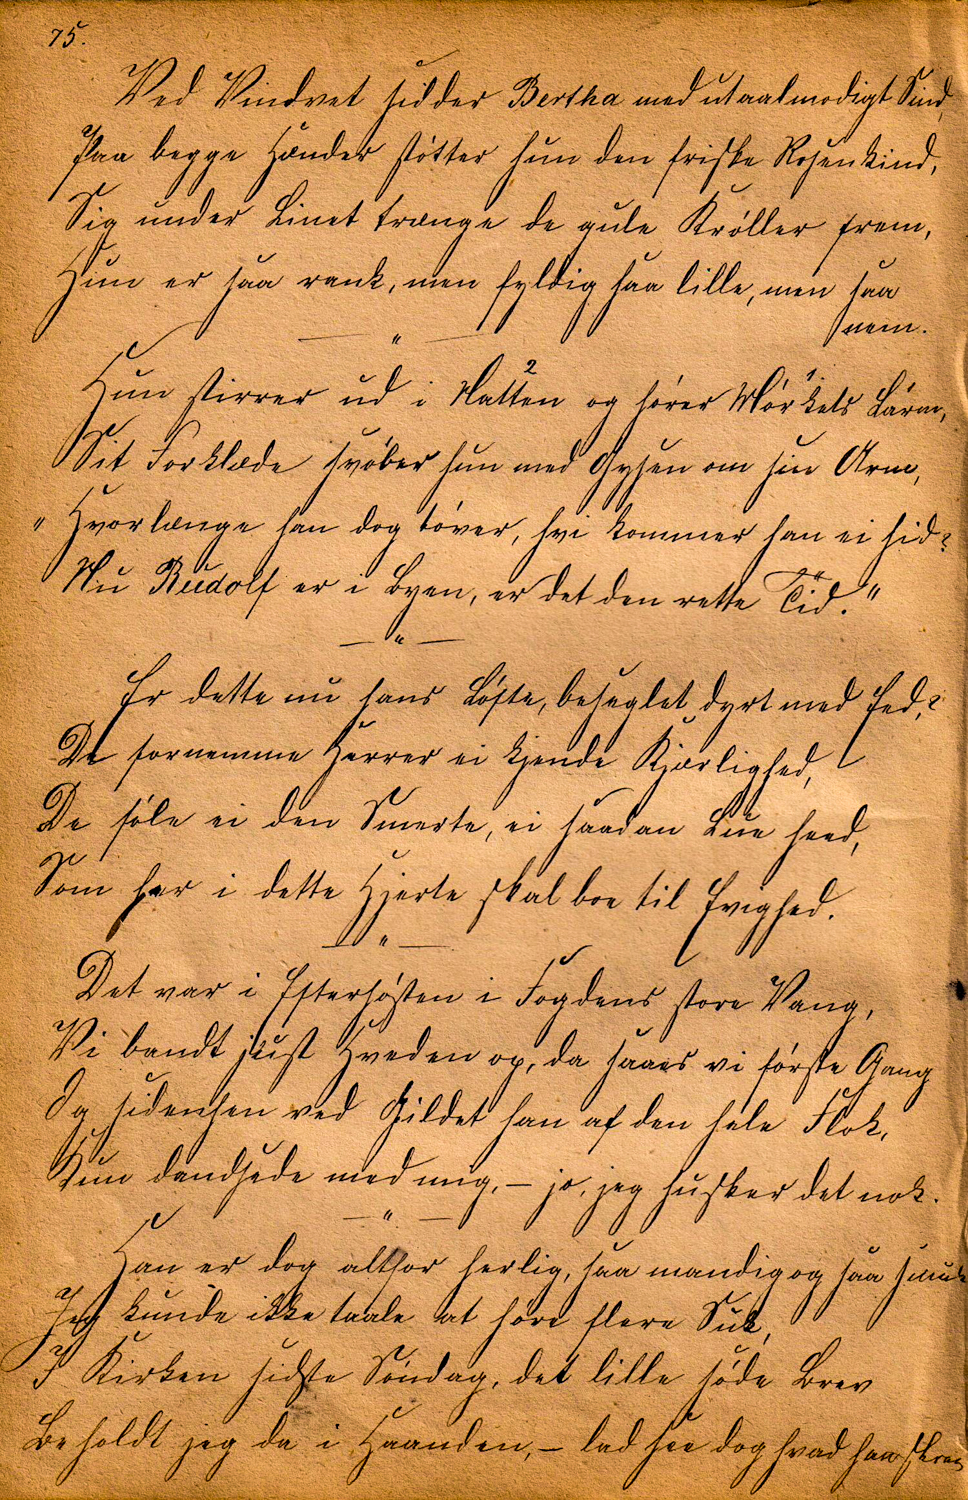 75.
Ved Vinduet sidder Bertha med utaalmodigt Sind,
Paa begge Hænder støtter hun den friske Rosenkind,
Sig under Linet trænge de gule Krøller frem,
Hun er saa rank, men fyldig saa lille, men saa
nem.
— " —
Hun stirrer ud i Natten og hører Mörkets Lärm,
Sit Forklæde svøber hun med Gysen om sin Arm,
" Hvorlænge han dog tøver, hvi kommer han ei hid?
Nu Rudolf er i Byen, er det den rette Tid."
— " —
Er dette nu hans Løfte, beseglet dyrt med Eed,?
De fornemme Herrer ei kjende Kjærlighed,
De føle ei den Smerte, ei saadan Lue heed,
Som her i dette Hjerte skal boe til Evighed.
— " —
Det var i Efterhøsten i Fogdens store Vang,
Vi bandt just Hveden op, da saaes vi første Gang
Og sidenhen ved Gildet han af den hele Flok,
Kun dandsede med mig, — jo, jeg husker det nok.
— " —
Han er dog altfor herlig, saa mandig og saa smuk
Jeg kunde ikke taale at høre flere Suk,
I Kirken sidste Søndag, det lille søde Brev
Beholdt jeg da i Haanden, — lad see dog hvad han skrev